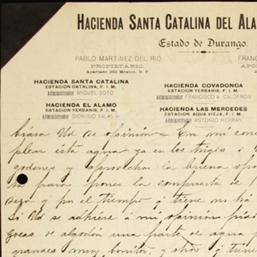 HACIENDA SANTA CATALINA DEL ALA
Estado de Durango.
PABLO MARTINEZ DEL RIO,
PROPIETARIO.
Apartado 202 México, D. F.
FRANC
HACIENDA SANTA CATALINA
ESTACION CATALINA, F. I. M.
MIGUEL SOTO
HACIENDA COVADONGA
ESTACION YERBANIS, F. I. M.
FRANCISCO A. CALDERON
HACIENDA EL ALAMO
ESTACION YERBANIS, F. I. M.
DIONISIO SALAS
HACIENDA LAS MERCEDES
ESTACION NOE VIEJA, F. I. M.
ANTONIO HERRAN
Ud de opinión En mi con
plear esta agua ya en los trigos ó
godones y aprovechar la buena opor
para poner la compuerta de
y por el tiempo q tiene no há
Si Ud se adhiere á mi opinión
de algodón una parte de agua
grandes muy bonito, y otros q tiene